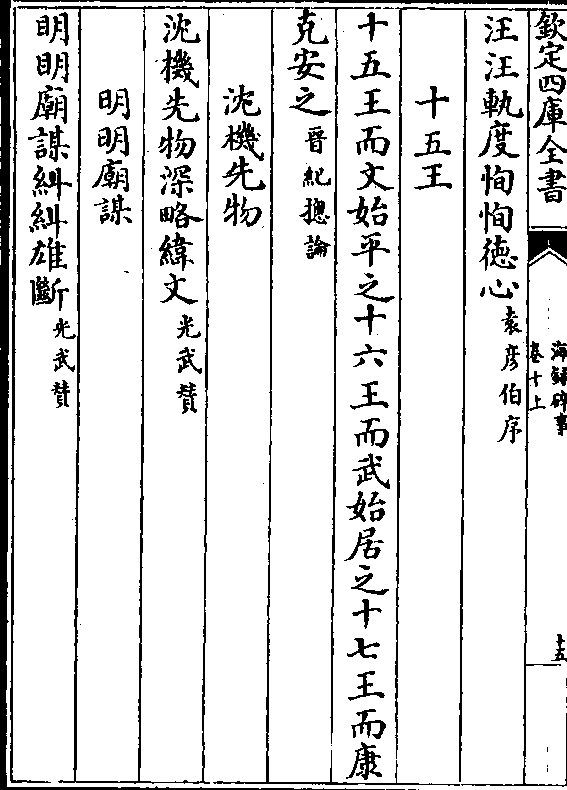 欽定四庫全書
海録碎事
卷十上
十五
汪汪軌度恂恂徳心袁彦伯序
十五王
十五王而文始平之十六王而武始居之十七王而康
克安之晉紀總論
沈機先物
沈機先物深略緯文光武賛
明明廟謀
明明廟謀糾糾雄斷光武賛